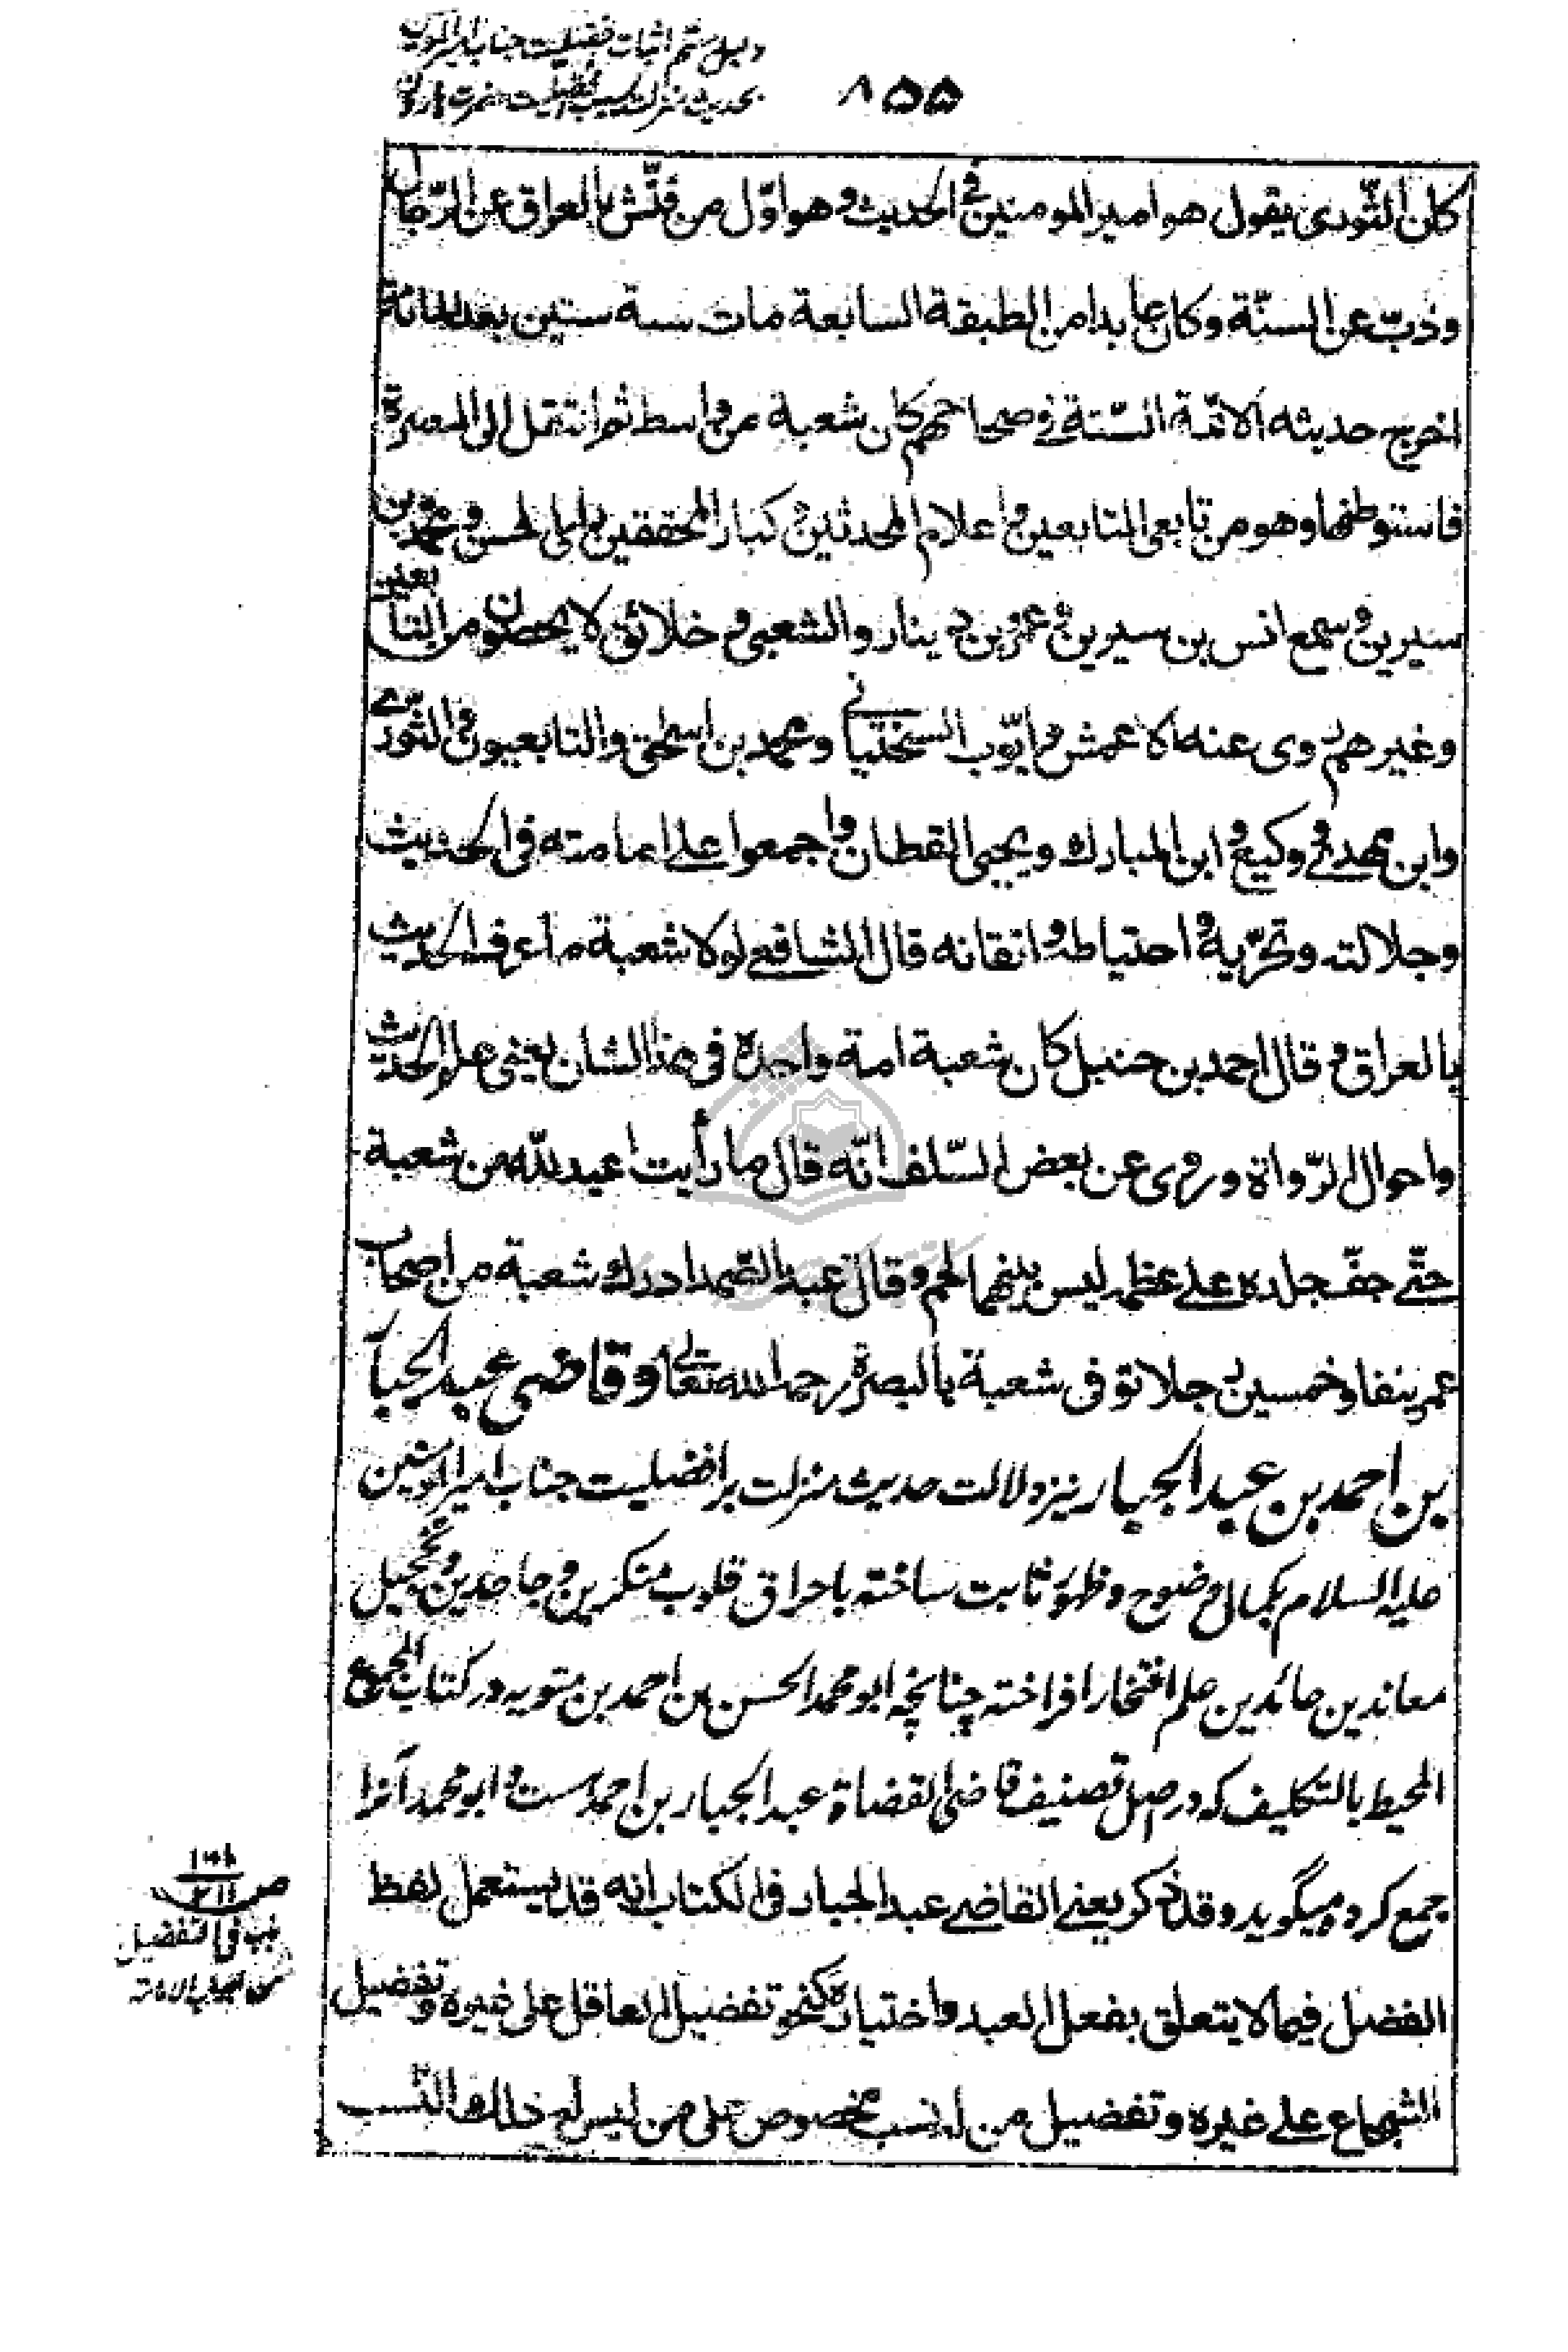 دلیل ستم اثبات افضلیت جناب امیرالمومنین
بحدیث منزلت بسبب افضلیت حضرت هارون
۸۵۵
كان الثوري يقول هو امير المومنين في الحديث وهو اوّل من فتّش بالعراق عن الرّجال
وذبّ عن السنّة وكان عابدا من الطبقة السابعة مات سنة ستين بعد المائة
اخرج حديثه الائمّة الستّة في صحاحهم كان شعبة من واسط ثم انتقل الى البصرة
فاستوطنها وهو من تابعي التابعين و اعلام المحدثين و كبار المحققين راى الحسن و محمد بن
سيرين و سمع انس بن سيرين و عمرو بن دينار والشعبي و خلائق لا يحصون من التابعين
وغيرهم روى عنه الاعمش و ايّوب السختياني ومحمد بن اسحق والتابعيون و الثوري
وابن مهدي و وكيع و ابن المبارك ويحيى القطان و اجمعوا على امامته في الحديث
وجلالته وتحرّيه و احتياطه و اتقانه قال الشافعي لولا شعبة ما عرف الحديث
بالعراق و قال احمد بن حنبل كان شعبة امة واحدة في هذا الشان يعني علم الحديث
واحوال الرّواة وروى عن بعض السّلف انّه قال ما رأيت اعبد لله من شعبة
حتّى جفّ جلده على عظمه ليس بينهما لحم و قال عبد الصّمد ادرك شعبة من اصحاب
عمر نيفا وخمسين رجلا توفي شعبة بالبصرة رحمه الله تعالى و قاضی عبد الجبار
بن احمد بن عبد الجبار نیز دلالت حدیث منزلت بر افضلیت جناب امیرالمومنین
علیه السلام بکمال وضوح و ظهور ثابت ساخته باحراق قلوب منکرین و جاحدین و تخجیل
معاندین حائدین علم افتخار افراخته چنانچه ابو محمد الحسن بن احمد بن متویه در کتاب المجموع
المحیط بالتکلیف که در اصل تصنیف قاضی القضاة عبد الجبار بن احمدست و ابو محمد آنرا
جمع کرده میگوید و قد ذكر يعني القاضي عبد الجبار في الكتاب انه قد يستعمل لفظ
الفضل فيما لا يتعلق بفعل العبد واختياره كنحو تفضيل العاقل على غيره و تفضيل
الشجاع على غيره وتفضيل من له نسب مخصوص على من ليس له ذلك النسب
ص
۲۱۱
باب فی التفضیل
من الامامة